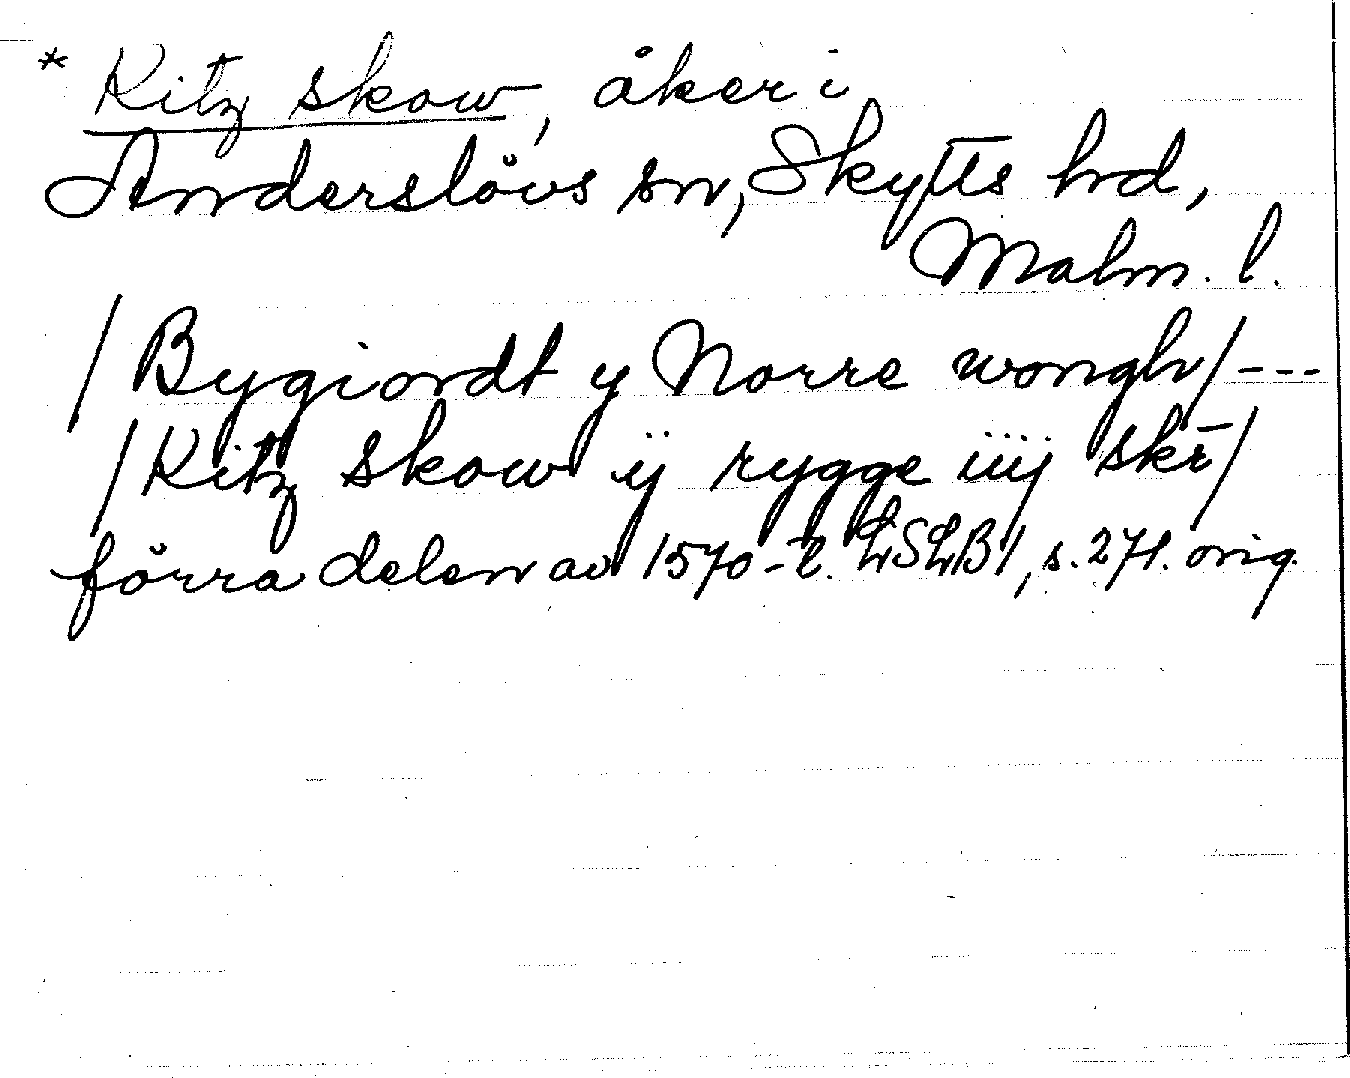 * Kitz skow, åker i
Anderslövs sn, Skytts hd,
Malm. l.
/Bygiordt y Norre wongh/---
/Kitz skow ij rygge iiij skr̄/
förra delen av 1570-t. LSLB1, s. 271. orig.